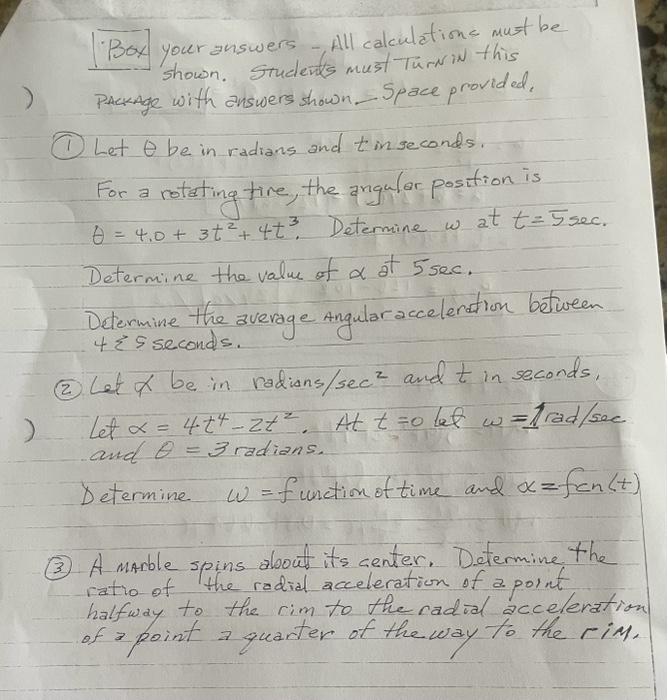 Box your answers - All calculations must be
shown. Students must Turn in this
Package with answers shown - Space provided.
① Let θ be in radians and t in seconds.
For a rotating tire, the angular position is
θ = 4.0 + 3t² + 4t³. Determine ω at t = 5 sec.
Determine the value of α at 5 sec.
Determine the average Angular acceleration between
4 & 5 seconds.
② Let α be in radians/sec² and t in seconds,
Let α = 4t⁴ - 2t². At t = 0 let ω = 1 rad/sec
and θ = 3 radians.
Determine ω = function of time and α = fcn(t)
③ A marble spins about its center. Determine the
ratio of the radial acceleration of a point
halfway to the rim to the radial acceleration
of a point a quarter of the way to the rim.